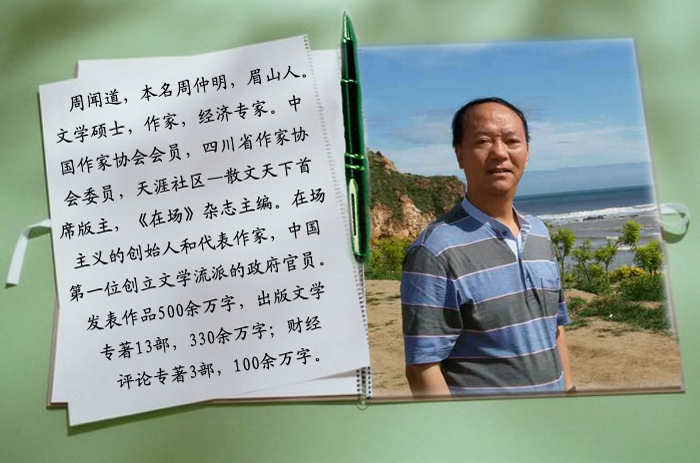 周闻道，本名周仲明，眉山人。
文学硕士，作家，经济专家。中
国作家协会会员，四川省作家协
会委员，天涯社区—散文天下首
席版主，《在场》杂志主编。在场
主义的创始人和代表作家，中国
第一位创立文学流派的政府官员。
发表作品500余万字，出版文学
专著13部，330余万字；财经
评论专著3部，100余万字。